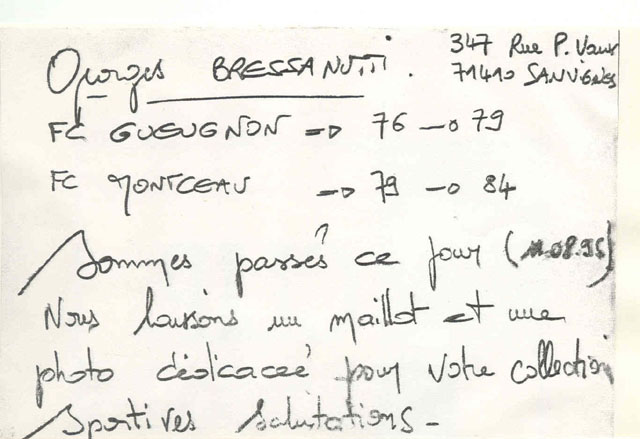 Georges BRESSANUTTI.
347 Rue P. Vaux
71410 SANVIGNES
FC GUEUGNON => 76 -> 79
FC MONTCEAU => 79 -> 84
Sommes passés ce jour (11.08.95)
Nous laissons un maillot et une
photo dédicacée pour votre collection
Sportives salutations -